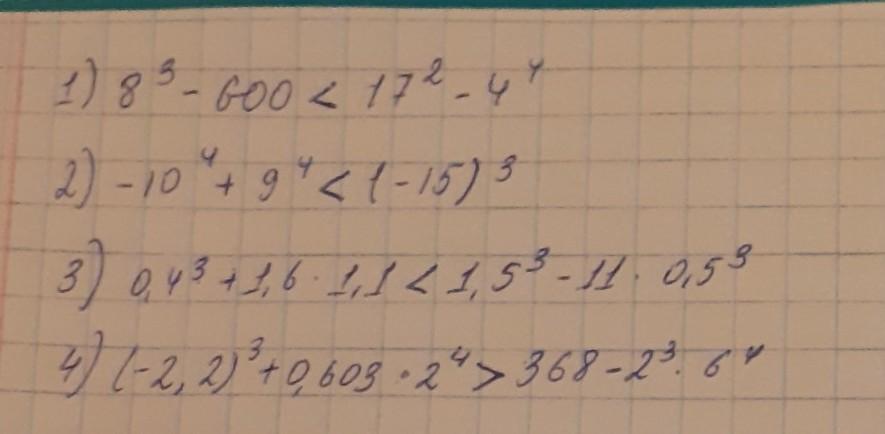 1) 8³ - 600 < 17² - 4⁴
2) -10⁴ + 9⁴ < (-15)³
3) 0,4³ + 1,6 · 1,1 < 1,5³ - 11 · 0,5³
4) (-2,2)³ + 0,603 · 2⁴ > 368 - 2³ · 6⁴